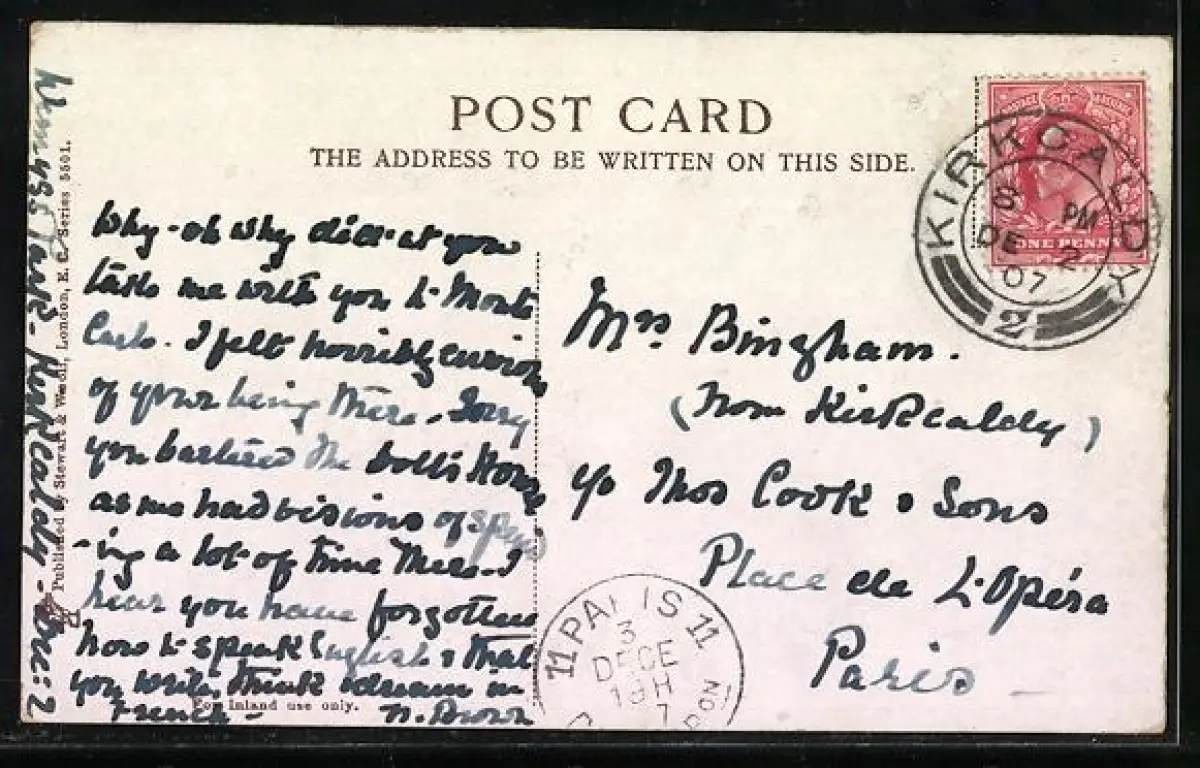 POST CARD
THE ADDRESS TO BE WRITTEN ON THIS SIDE.
Why - oh why didn't you
take me with you to Monte
Carlo. I felt horribly envious
of your being there. Sorry
you the Dolls House
as we had visions of spend
-ing a lot of time there. I
hear you have forgotten
how to speak English & that
you write, think & dream in
French - N. Brown
For Inland use only.
Wemyss Park - Kirkcaldy - Dec: 2
Published by Stewart & Woolf, London, E. C. Series 5501.
Mrs Bingham.
(From Kirkcaldy)
c/o Thos Cook & Sons
Place de L'Opéra
Paris
KIRKCALDY
8 PM
DE 2
07
2
ONE PENNY
11 PARIS 11
3
DECE
19H
7